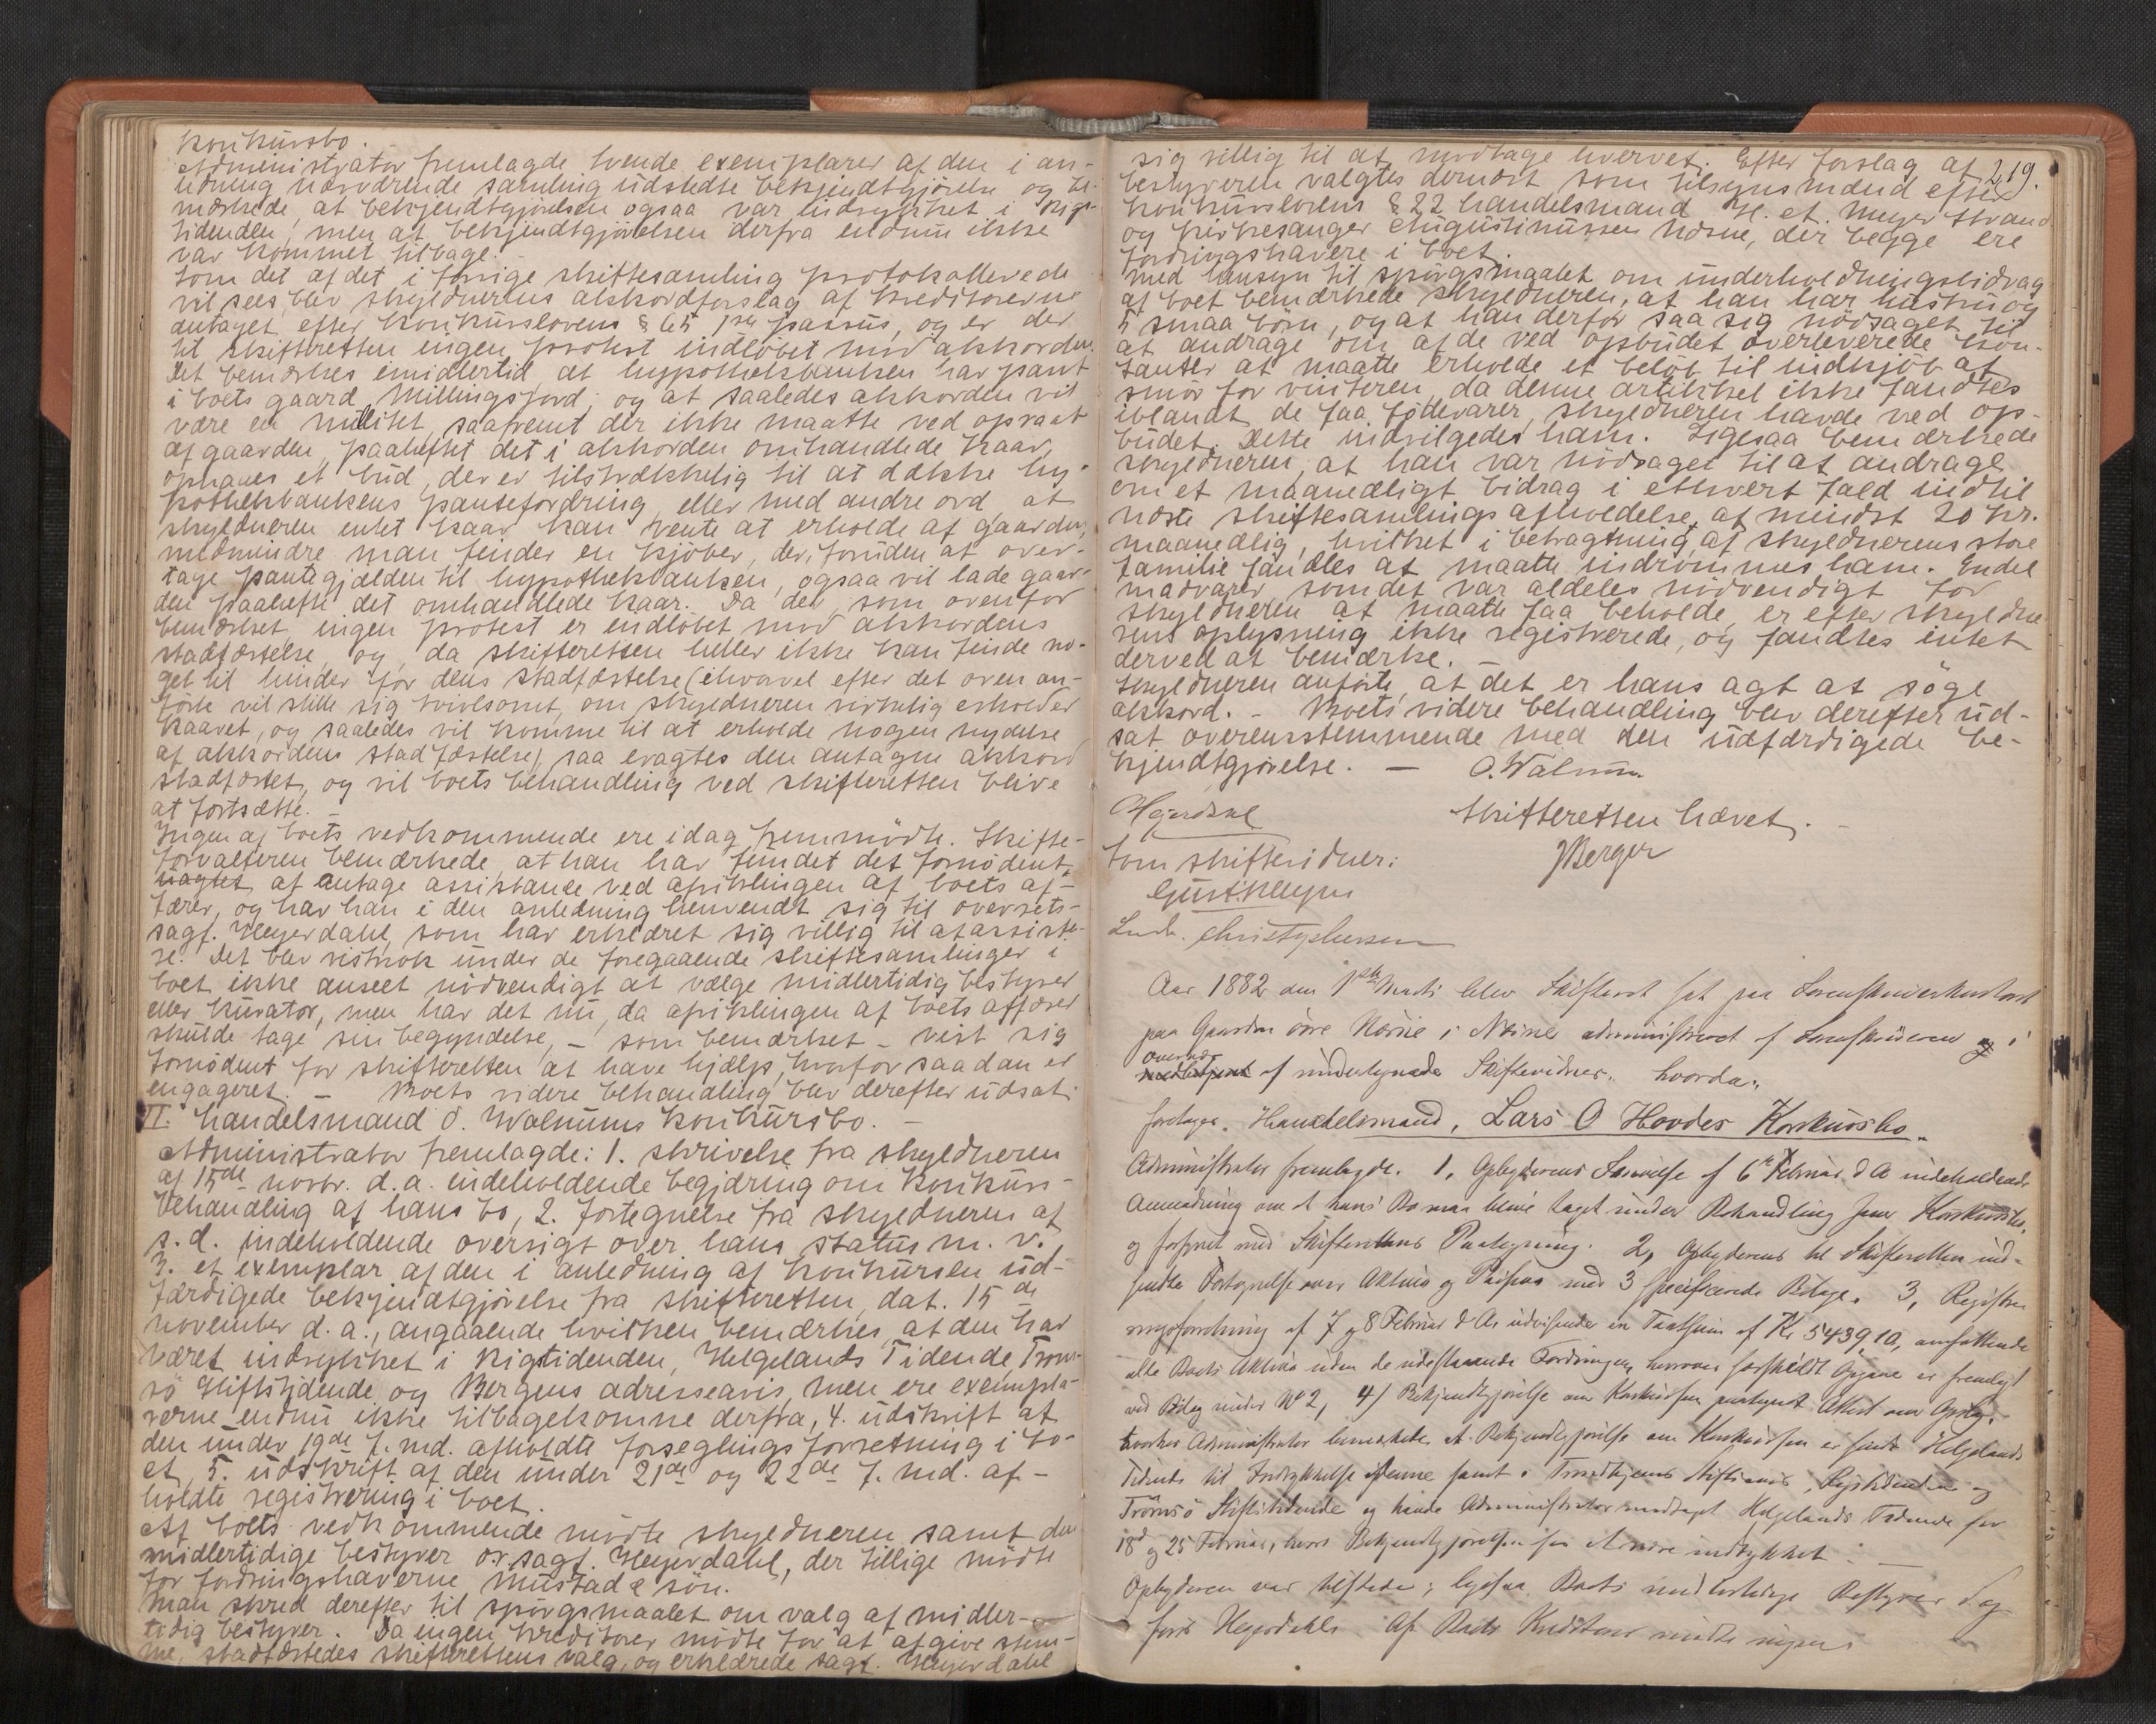 konkursbo.
Administrator fremlagde tvende exemplarer af den i an-
ledning nærværende samling udstedte bekjendtgjörelse og be-
mærkede, at bekjendtgjörelsen ogsaa var indrykket i Rigs-
tidenden, men at bekjendtgjörelsen derfra endnu ikke
var kommet tilbage.
Som det af det i forrige skiftesamling protokollerede
vil sees, blev skyldnerens akkordforslag af kreditorerne
antaget efter konkurslovens § 65 1ste passus, og er der
til skifteretten ingen protest indlöbet mod akkorden.
Det bemærkes imidlertid at hypothekbanken har pant
i boets gaard, Millingsford; og at saaledes akkorden vil
være en nullitet, saafremt der ikke maatte ved opraab
af gaarden, paaheftet det i akkorden omhandlede kaar,
opnaaes et bud, der er tilstrækkelig til at dække hy-
pothekbankens pantefordring, eller med andre ord at
skyldneren intet kaar kan vente at erholde af gaarden,
medmindre man finder en kjöber, der, foruden at over-
tage pantegjælden til hypothekbanken, ogsaa vil lade gaar-
den paahefte det omhandlede kaar. Da der, som ovenfor
bemærket, ingen protest er indlöbet mod akkordens
stadfæstelse, og, da skifteretten heller ikke kan finde no-
get til hinder for dens stadfæstelse (ihvorvel efter det oven an-
förte vil stille sig tvivlsomt, om skyldneren virkelig erholder
kaaret, og saaledes vil komme til at erholde nogen nydelse
af akkordens stadfæstelse), saa eragtes den antagne akkord
stadfæstet, og vil boets behandling ved skifteretten blive
at fortsætte. –
Ingen af boets vedkommende ere idag fremmödte. Skifte-
forvalteren bemærkede, at han har fundet det fornödent,
at antage assistance ved afviklingen af boets af-
færer, og har han i den anledning henvendt sig til overrets-
sagf. Heyerdahl, som har erklæret sig villig til at assiste-
re. Det blev vistnok under de foregaaende skiftesamlinger i
boet ikke anseet nödvendigt at vælge midlertidig bestyrer
eller kurator, men har det nu, da afviklingen af boets affærer
skulde tage sin begyndelse, – som bemærket – vist sig
fornödent for skifteretten at have hjælp, hvorfor saadan er
engageret. – Boets videre behandling blev derefter udsat.
II. handelsmand O. Walnums konkursbo. –
Administrator fremlagde: 1. skrivelse fra skyldneren
af 15de novbr. d.a. indeholdende begjæring om konkurs-
behandling af hans bo, 2. fortegnelse fra skyldneren af
s.d. indeholdende oversigt over hans status m. v.
3. et exemplar af den i anledning af konkursen ud-
færdigede bekjendtgjörelse fra skifteretten, dat. 15de
november d.a., angaaende hvilken bemærkes, at den har
været indrykket i Rigstidenden, Helgelands Tidende Trom-
sö Stiftstidende og Bergens adresseavis, men ere exempla-
rerne endnu ikke tilbagekomne derfra, 4. udskrift af
den under 19de f. md. afholdte forseglingsforretning i bo-
et, 5. udskrift af den under 21de og 22de f. md. af-
holdte registrering i boet.
Af boets vedkommende mödte skyldneren samt den
midlertidige bestyrer o.r.sagf. Heyerdahl, der tillige mödte
for fordringshaverne Mustad & sön.
Man skred derefter til spörgsmaalet om valg af midler-
tidig bestyrer. Da ingen kreditorer mödte for at afgive stem-
me, stadfæstedes skifterettens valg, og erklærede sagf. Heyerdahl
219.
sig villig til at modtage hvervet. Efter forslag af
bestyreren valgtes dernæst som tilsynsmænd efter
konkurslovens § 22 handelsmand H. A. Meyer Strand
og kirkesanger Augustinussen Næsne, der begge ere
fordringshavere i boet.
Med hensyn til spörgsmaalet om underholdningsbidrag
af boet bemærkede skyldneren, at han har hustru og
5 smaa börn, og at han derfor saa sig nödsaget til
at andrage om af de ved opbudet overleverede kon-
tanter at maatte erholde et belöb til indkjöb af
smör for vinteren, da denne artikkel ikke fandtes
iblandt de faa födevarer, skyldneren havde ved op-
budet. Dette indvilgedes ham. Ligesaa bemærkede
skyldneren, at han var nödsaget til at andrage
om et maanedligt bidrag i ethvert fald indtil
næste skiftesamlings afholdelse af mindst 20 kr.
maanedlig, hvilket i betragtning af skyldnerens store
familie fandtes at maatte indrömmes ham. Endel
madvarer, som det var aldeles nödvendigt for
skyldneren at maatte faa beholde, er efter skyldne-
rens oplysning ikke registrerede, og fandtes intet
derved at bemærke. –
Skyldneren anförte, at det er hans agt at söge
akkord. – Boets videre behandling blev derefter ud-
sat overensstemmende med den udfærdigede be-
kjendtgjörelse. – O. Walnum
Heyerdahl Skifteretten hævet. –
Som skiftevidner: JBerger
Christophersen
Aar 1882 den 1ste Marts blev Skifteret sat paa Sorenskriverkontoret
paa Gaarden övre Næsne i Næsne administreret af Sorenskriveren i
overvær af undertegnede Skiftevidner, hvorda:
foretoges. Handelsmand, Lars O Hovdes Konkursbo.
Administrator fremlagde. 1, Opbyderens Skrivelse af 6te Februar d A indeholdende
Anmodning om at hans Bo maa blive taget under Behandling som Konkursbo,
og forsynet med Skifterettens Paategning. 2, Opbyderens til Skifteretten ind-
sendte Fortegnelse over Aktiva og Passiva med 3 specificerede Bilage. 3, Registre-
ringsforretning af 7 og 8 Februar d Ar udvisende en Taxtsum af Kr 5439,10, omfattende
alle Boets Aktiva uden de udestaaende Fordringer, hvorover særskildt Opgave er fremlagt
ved Bilag under No 2, 4) Bekjendtgjörelse om Konkursen paategnet Attest om Opslag.
hvorhos Administrator bemærkede at Bekjendtgjörelse om Konkursen er sendt Helgelands
Tidende til Indrykkelse i denne samt i Trondhjems Stiftsavis, Rigstidenden og
Tromsö Stiftstidende og havde Administrator modtaget Helgelands Tidende for
18de og 25 Februar, hvori Bekjendtgjörelsen findes indrykket. –
Opbyderen var tilstede; ligesaa Boets midlertidige Bestyrer Sag
förer Heyerdahl. Af Boets Kreditorer mödte ingen